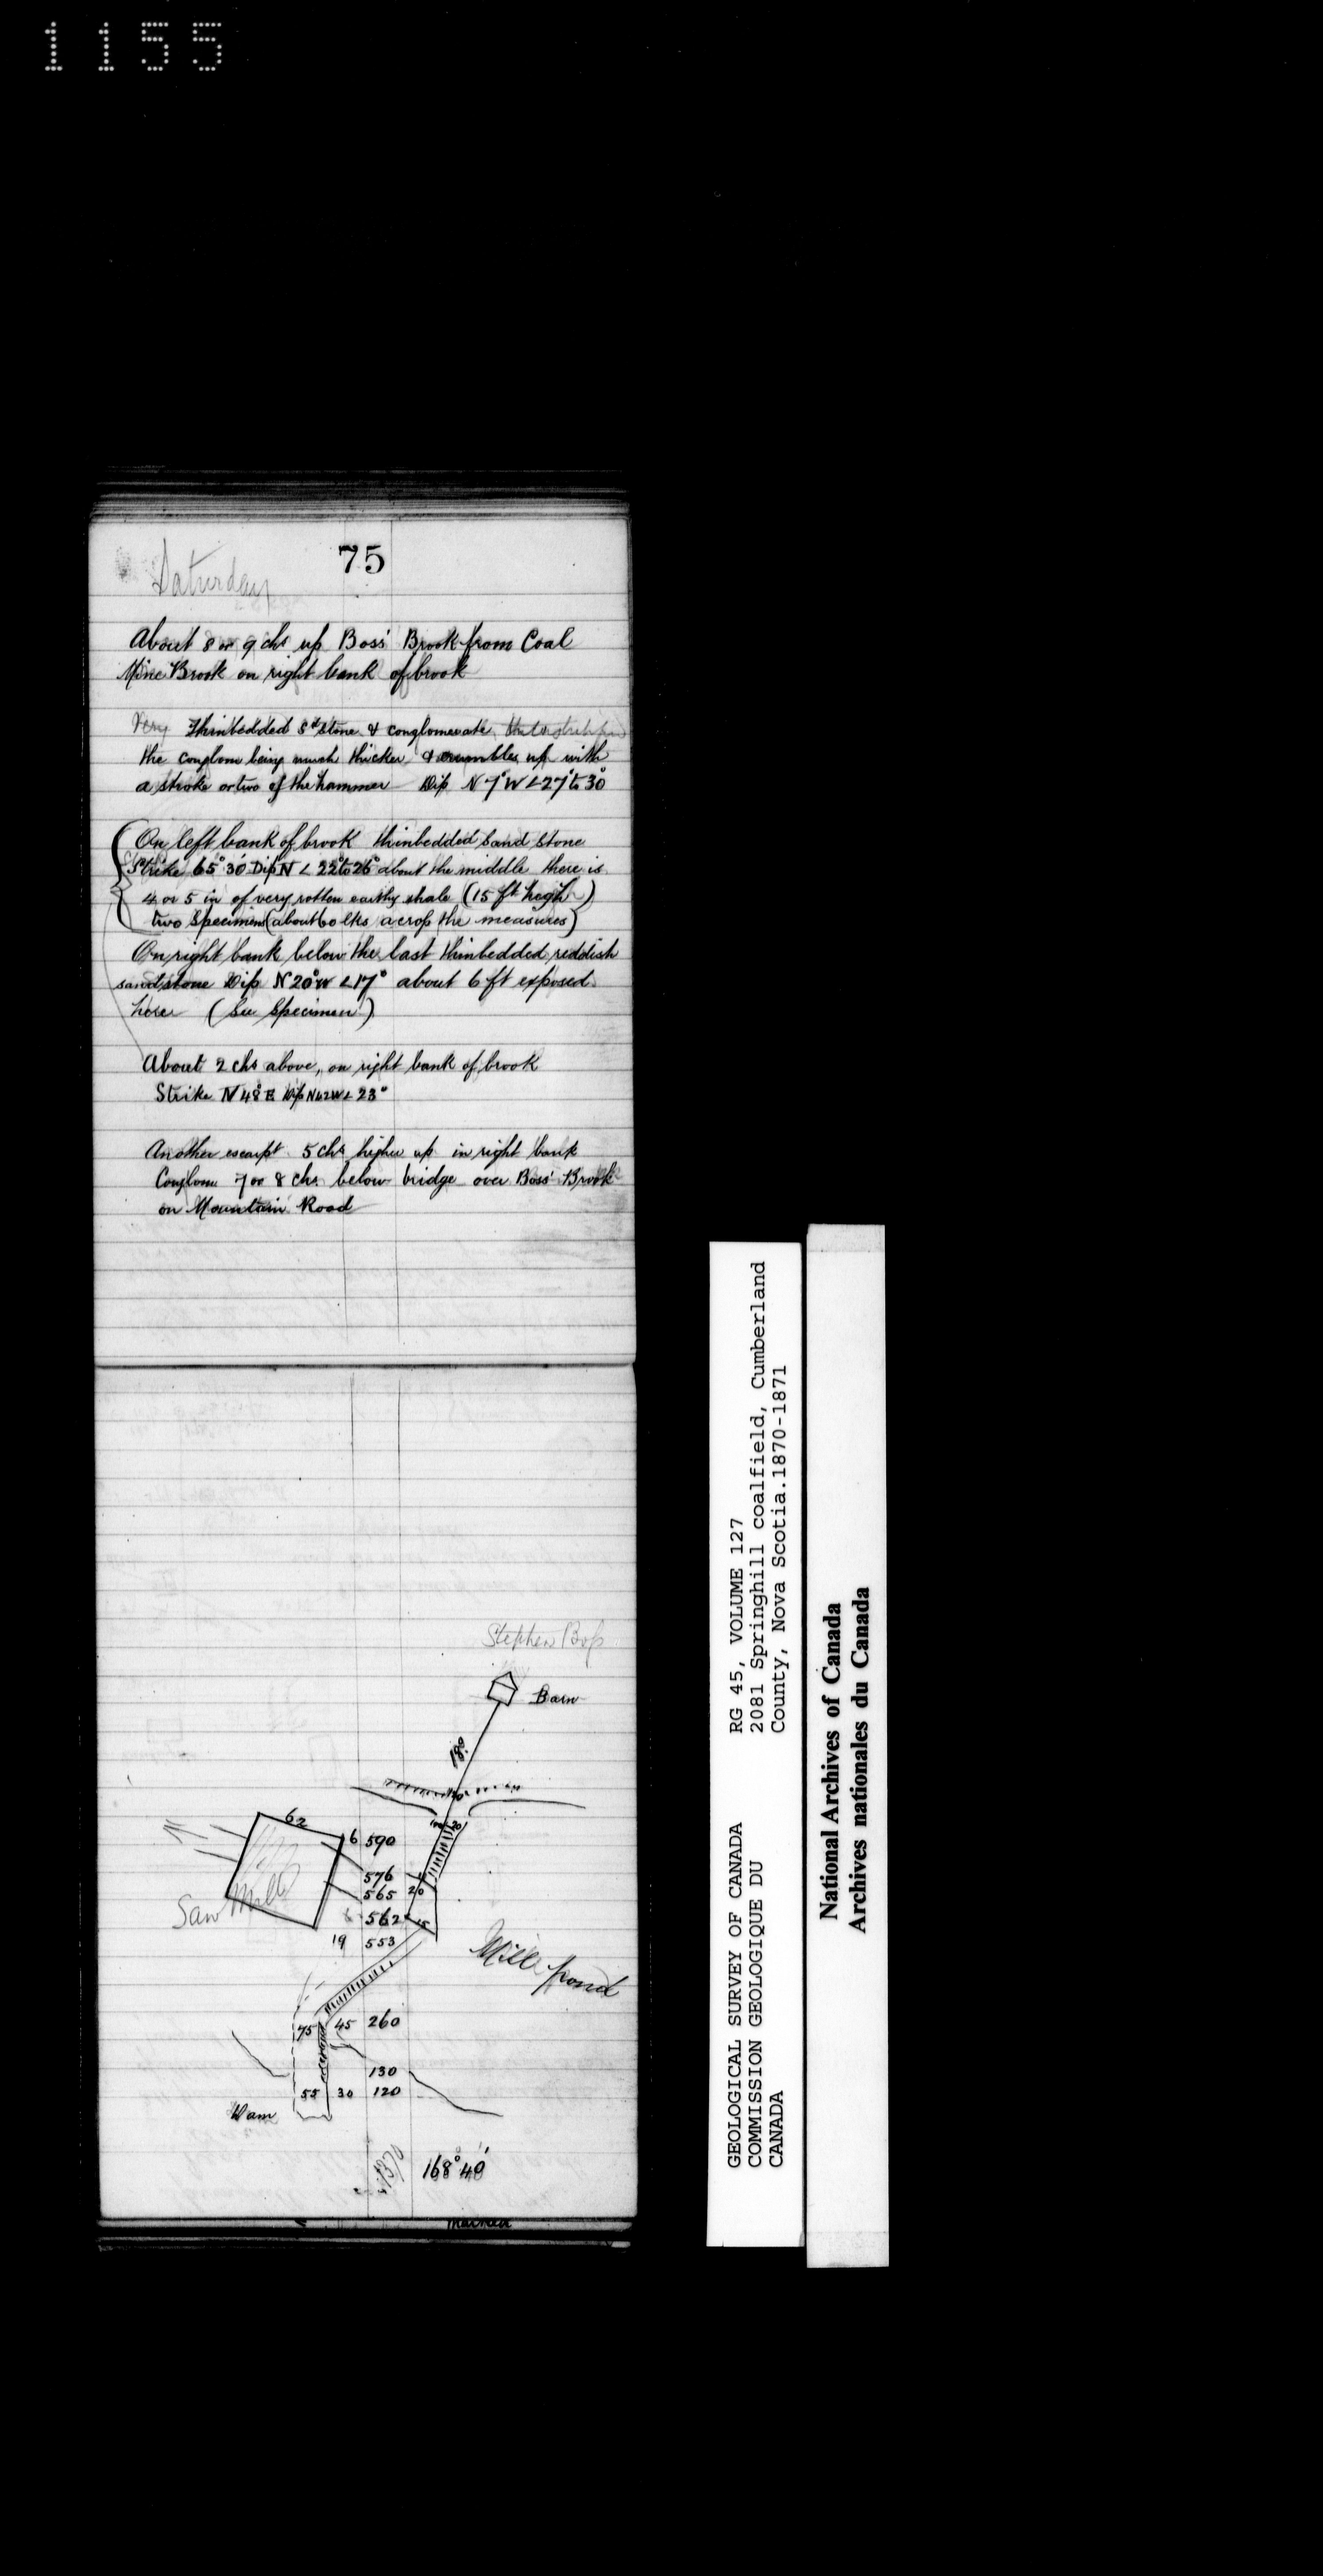 1155
75
Saturday
About 8 or 9 chs up Boss' Brook from Coal
Mine Brook on right bank of brook
Very Thinbedded Sdstone & conglomerate
the conglom being much thicker & crumbles up with
a stroke or two of the hammer Dip N 7° W < 27° to 30°
On left bank of brook thinbedded Sand Stone
Strike 65° 30' Dip N < 22° to 26° about the middle there is
4 or 5 in of very rotten earthy shale (15 ft high)
two Specimens (about 60 lks across the measures)
On right bank below the last thinbedded reddish
sandstone Dip N 20° W < 17° about 6 ft exposed
here (See Specimen)
About 2 chs above, on right bank of brook
Strike N 48° E Dip N 42 W < 23°
Another escarpt 5 chs higher up in right bank
Conglom 7 or 8 chs below bridge over Boss' Brook
on Mountain Road
Stephen Boss
Barn
18°
62
6 590
576
565 20
562 15
19 553
Saw Mill
Mill pond
75 45 260
130
55 30 120
Dam
1370 168° 40'
GEOLOGICAL SURVEY OF CANADA
COMMISSION GEOLOGIQUE DU
CANADA
RG 45, VOLUME 127
2081 Springhill coalfield, Cumberland
County, Nova Scotia.1870-1871
National Archives of Canada
Archives nationales du Canada